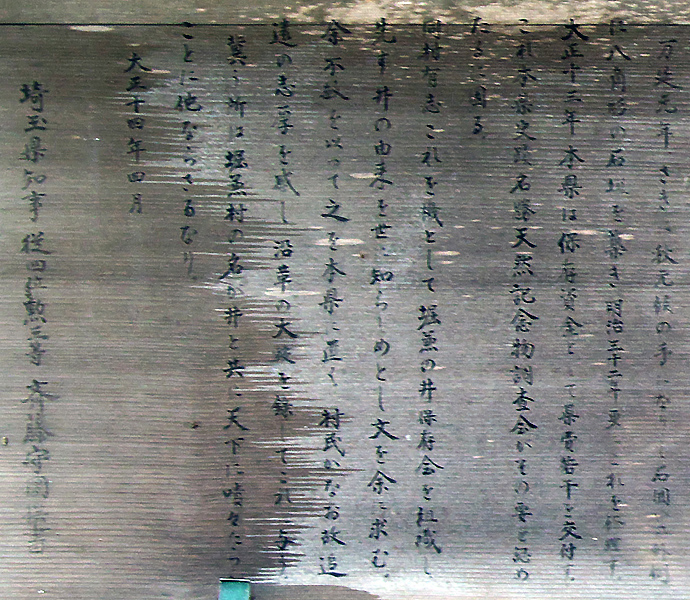 万延元年 さきに秋元侯の手になりし石囲の外側
に八角形の石垣を築き 明治三十二年更にこれを修理す
大正十三年本県は保存資金として県費若干を交付す
これ本県史蹟名勝天然記念物調査会がその要を認め
たるに因る
同村有志 これを機として 堀兼の井保存会を組織し
先年井の由来を世に知らしめとし 文を余に求む
余不敏を以って之を本県に 村民がなお故追
遠の志厚を感し 沿革の大要を録してこれに与う
冀う所は 堀兼村の名が井と共に天下に嘖々たらん
ことに他ならざるなり
大正十四年四月
埼玉県知事 従四位勲三等 斉藤守圀